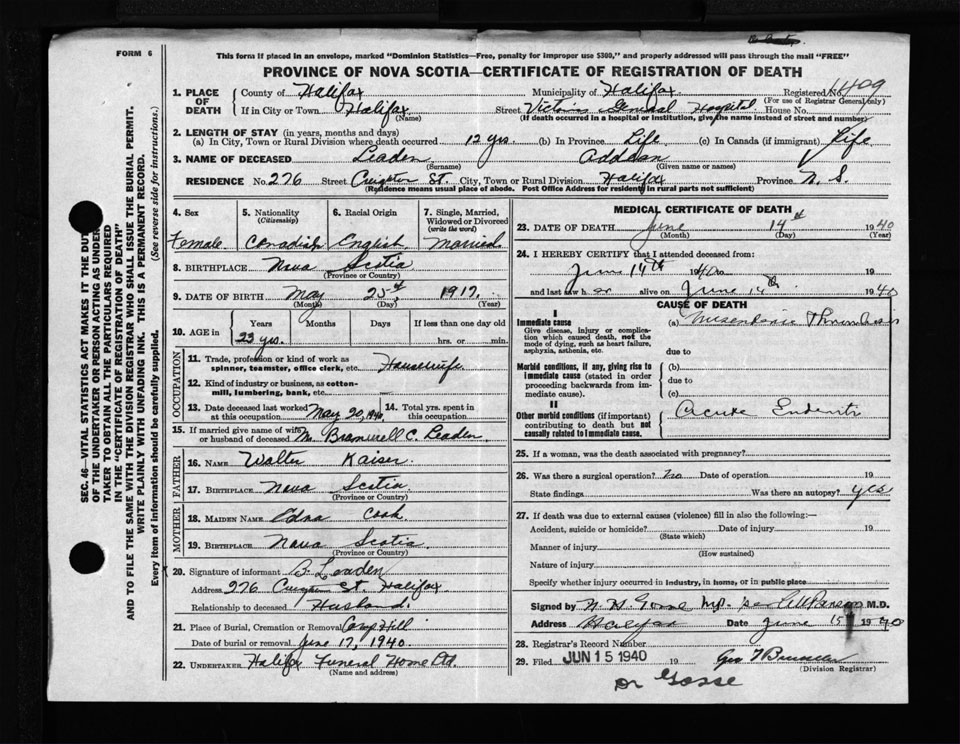 FORM 6
This form if placed in an envelope, marked "Dominion Statistics—Free, penalty for improper use $300," and properly addressed will pass through the mail "FREE"
PROVINCE OF NOVA SCOTIA—CERTIFICATE OF REGISTRATION OF DEATH
SEC. 46—VITAL STATISTICS ACT MAKES IT THE DUTY
OF THE UNDERTAKER OR PERSON ACTING AS UNDER-
TAKER TO OBTAIN ALL THE PARTICULARS REQUIRED
IN THE "CERTIFICATE OF REGISTRATION OF DEATH"
AND TO FILE THE SAME WITH THE DIVISION REGISTRAR WHO SHALL ISSUE THE BURIAL PERMIT.
WRITE PLAINLY WITH UNFADING INK. THIS IS A PERMANENT RECORD.
Every item of information should be carefully supplied. (See reverse side for instructions.)
1. PLACE OF DEATH County of Halifax Municipality of Halifax Registered No. 1409
(For use of Registrar General only)
If in City or Town Halifax Street Victoria General Hospital House No.
(Name) (If death occurred in a hospital or institution, give the name instead of street and number)
2. LENGTH OF STAY (in years, months and days)
(a) In City, Town or Rural Division where death occurred 12 yrs. (b) In Province Life (c) In Canada (if immigrant) Life
3. NAME OF DECEASED Leaden
(Surname) (Given name or names)
RESIDENCE No. 276 Street Creighton St. City, Town or Rural Division Halifax Province N. S.
(Residence means usual place of abode. Post Office Address for residents in rural parts not sufficient)
4. Sex 5. Nationality (Citizenship) 6. Racial Origin 7. Single, Married, Widowed or Divorced (write the word)
Female. Canadian English. Married
8. BIRTHPLACE Nova Scotia
(Province or Country)
9. DATE OF BIRTH May 25th 1917.
(Month) (Day) (Year)
10. AGE in Years Months Days If less than one day old
23 yrs. hrs. or min.
OCCUPATION
11. Trade, profession or kind of work as spinner, teamster, office clerk, etc. Housewife
12. Kind of industry or business, as cotton-mill, lumbering, bank, etc. —
13. Date deceased last worked at this occupation May 20, 1940 14. Total yrs. spent in this occupation
15. If married give name of wife or husband of deceased Mr. Bramwell C. Leaden
FATHER
16. NAME Walter Kaiser.
17. BIRTHPLACE Nova Scotia
(Province or Country)
MOTHER
18. MAIDEN NAME Edna Cook
19. BIRTHPLACE Nova Scotia.
(Province or Country)
20. Signature of informant B. Leaden
Address 276 Creighton St. Halifax
Relationship to deceased Husband.
21. Place of Burial, Cremation or Removal Camp Hill
Date of burial or removal June 17, 1940
22. UNDERTAKER Halifax Funeral Home Ltd.
(Name and address)
MEDICAL CERTIFICATE OF DEATH
23. DATE OF DEATH June 14th 1940
(Month) (Day) (Year)
24. I HEREBY CERTIFY that I attended deceased from:
June 14th 1940 19
and last saw her alive on June 14th 1940
CAUSE OF DEATH
I
Immediate cause
Give disease, injury or complication which caused death, not the mode of dying, such as heart failure, asphyxia, asthenia, etc.
(a) Mesenteric Thrombosis
due to
Morbid conditions, if any, giving rise to immediate cause (stated in order proceeding backwards from immediate cause).
(b)
due to
(c)
II
Other morbid conditions (if important) contributing to death but not causally related to immediate cause.
Acute
25. If a woman, was the death associated with pregnancy?
26. Was there a surgical operation? No Date of operation 19
State findings Was there an autopsy? yes
27. If death was due to external causes (violence) fill in also the following:—
Accident, suicide or homicide? Date of injury 19
(State which)
Manner of injury
(How sustained)
Nature of injury
Specify whether injury occurred in industry, in home, or in public place
Signed by N. H. Gosse M.D. per M.D.
Address Halifax Date June 15 1940
28. Registrar's Record Number
29. Filed JUN 15 1940 19
(Division Registrar)
Dr Gosse